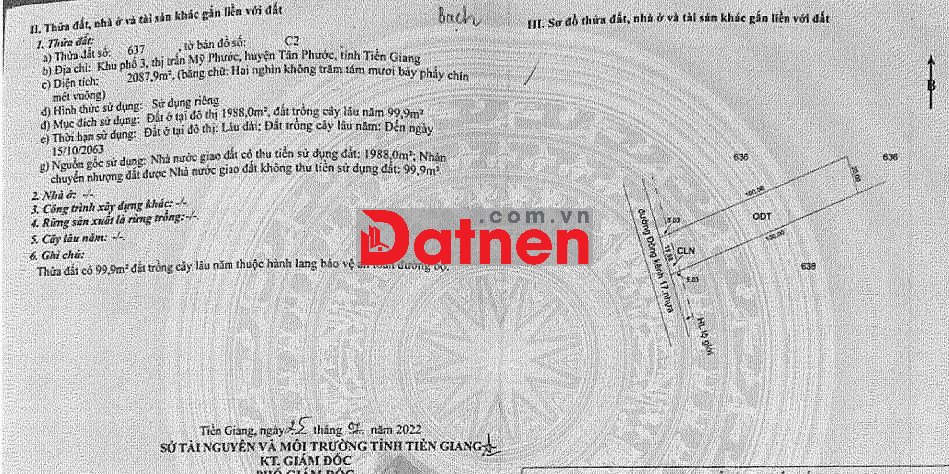 II. Thửa đất, nhà ở và tài sản khác gắn liền với đất
1. Thửa đất:
a) Thửa đất số: 637 , tờ bản đồ số: C2
b) Địa chỉ: Khu phố 3, thị trấn Mỹ Phước, huyện Tân Phước, tỉnh Tiền Giang
c) Diện tích: 2087,9m², (bằng chữ: Hai nghìn không trăm tám mươi bảy phẩy chín
mét vuông)
d) Hình thức sử dụng: Sử dụng riêng
đ) Mục đích sử dụng: Đất ở tại đô thị 1988,0m², đất trồng cây lâu năm 99,9m²
e) Thời hạn sử dụng: Đất ở tại đô thị: Lâu dài; Đất trồng cây lâu năm: Đến ngày
15/10/2063
g) Nguồn gốc sử dụng: Nhà nước giao đất có thu tiền sử dụng đất: 1988,0m²; Nhận
chuyển nhượng đất được Nhà nước giao đất không thu tiền sử dụng đất: 99,9m²
2. Nhà ở: -/-
3. Công trình xây dựng khác: -/-
4. Rừng sản xuất là rừng trồng: -/-
5. Cây lâu năm: -/-
6. Ghi chú:
Thửa đất có 99,9m² đất trồng cây lâu năm thuộc hành lang bảo vệ an toàn đường bộ.
Tiền Giang, ngày 25 tháng năm 2022
SỞ TÀI NGUYÊN VÀ MÔI TRƯỜNG TỈNH TIỀN GIANG
KT. GIÁM ĐỐC
PHÓ GIÁM ĐỐC
Bach
III. Sơ đồ thửa đất, nhà ở và tài sản khác gắn liền với đất
B
636
636
100.00
20.00
ODT
5.03
CLN
100.00
5.03
636
đường Đông kênh 17 nhựa
HL lộ giới
.com.vn
Datnen